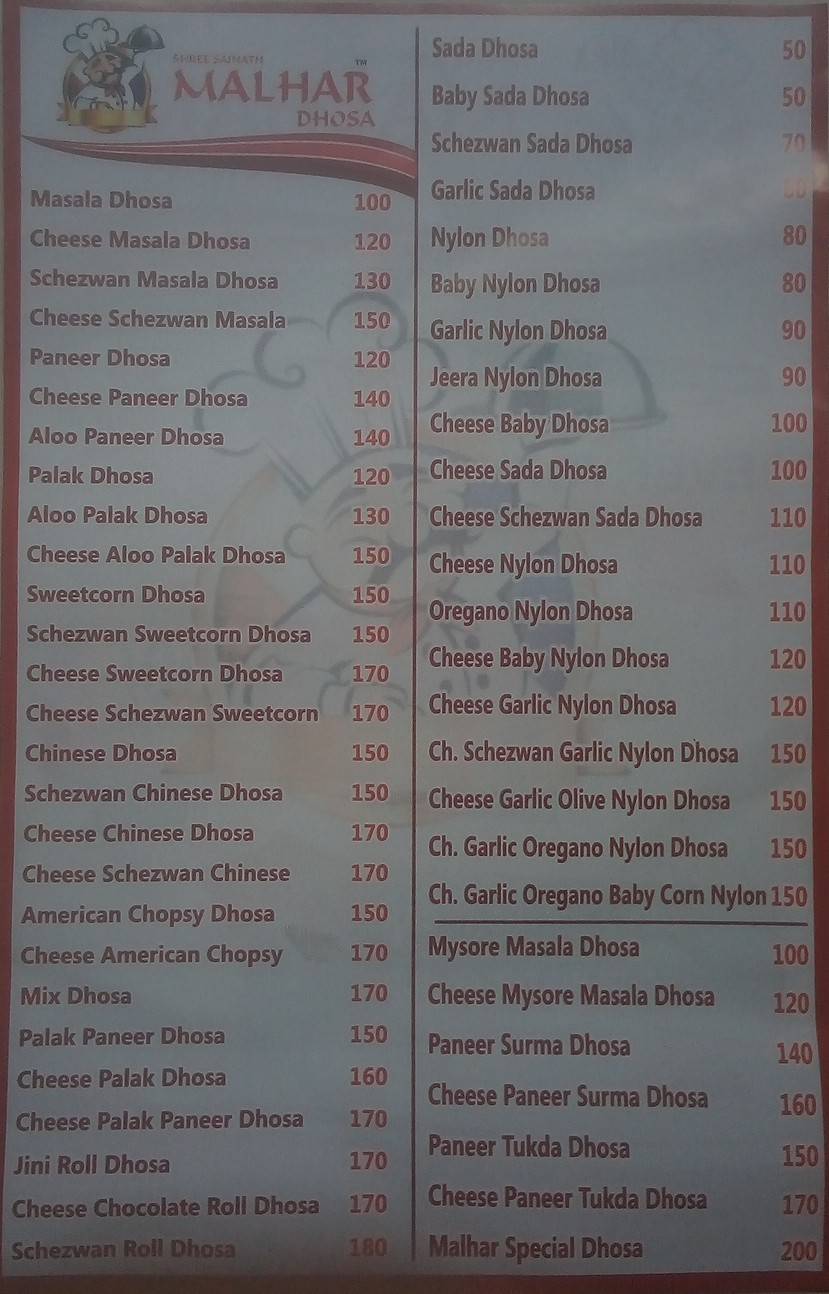 SHREE SAINATH
MALHAR TM
DHOSA
Masala Dhosa 100
Cheese Masala Dhosa 120
Schezwan Masala Dhosa 130
Cheese Schezwan Masala 150
Paneer Dhosa 120
Cheese Paneer Dhosa 140
Aloo Paneer Dhosa 140
Palak Dhosa 120
Aloo Palak Dhosa 130
Cheese Aloo Palak Dhosa 150
Sweetcorn Dhosa 150
Schezwan Sweetcorn Dhosa 150
Cheese Sweetcorn Dhosa 170
Cheese Schezwan Sweetcorn 170
Chinese Dhosa 150
Schezwan Chinese Dhosa 150
Cheese Chinese Dhosa 170
Cheese Schezwan Chinese 170
American Chopsy Dhosa 150
Cheese American Chopsy 170
Mix Dhosa 170
Palak Paneer Dhosa 150
Cheese Palak Dhosa 160
Cheese Palak Paneer Dhosa 170
Jini Roll Dhosa 170
Cheese Chocolate Roll Dhosa 170
Schezwan Roll Dhosa 180
Sada Dhosa 50
Baby Sada Dhosa 50
Schezwan Sada Dhosa 70
Garlic Sada Dhosa
Nylon Dhosa 80
Baby Nylon Dhosa 80
Garlic Nylon Dhosa 90
Jeera Nylon Dhosa 90
Cheese Baby Dhosa 100
Cheese Sada Dhosa 100
Cheese Schezwan Sada Dhosa 110
Cheese Nylon Dhosa 110
Oregano Nylon Dhosa 110
Cheese Baby Nylon Dhosa 120
Cheese Garlic Nylon Dhosa 120
Ch. Schezwan Garlic Nylon Dhosa 150
Cheese Garlic Olive Nylon Dhosa 150
Ch. Garlic Oregano Nylon Dhosa 150
Ch. Garlic Oregano Baby Corn Nylon 150
Mysore Masala Dhosa 100
Cheese Mysore Masala Dhosa 120
Paneer Surma Dhosa 140
Cheese Paneer Surma Dhosa 160
Paneer Tukda Dhosa 150
Cheese Paneer Tukda Dhosa 170
Malhar Special Dhosa 200